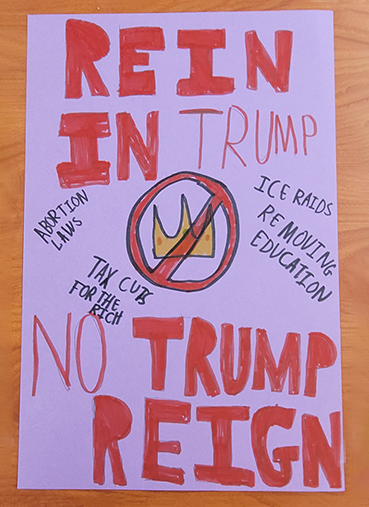 REIN
IN TRUMP
ABORTION
LAWS
ICE RAIDS
REMOVING
EDUCATION
TAX CUTS
FOR THE
RICH
NO TRUMP
REIGN